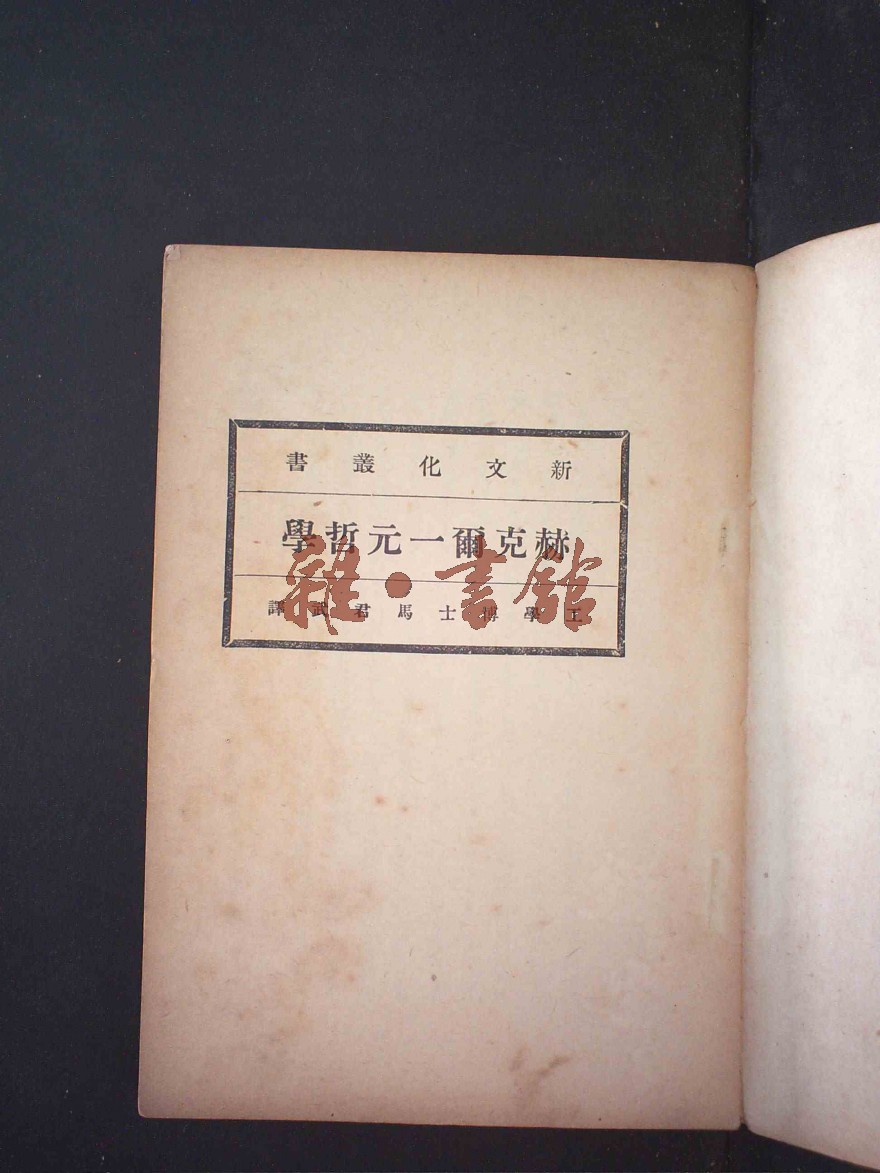 新文化叢書
赫克爾一元哲學
工學博士馬君武譯
雜·書館